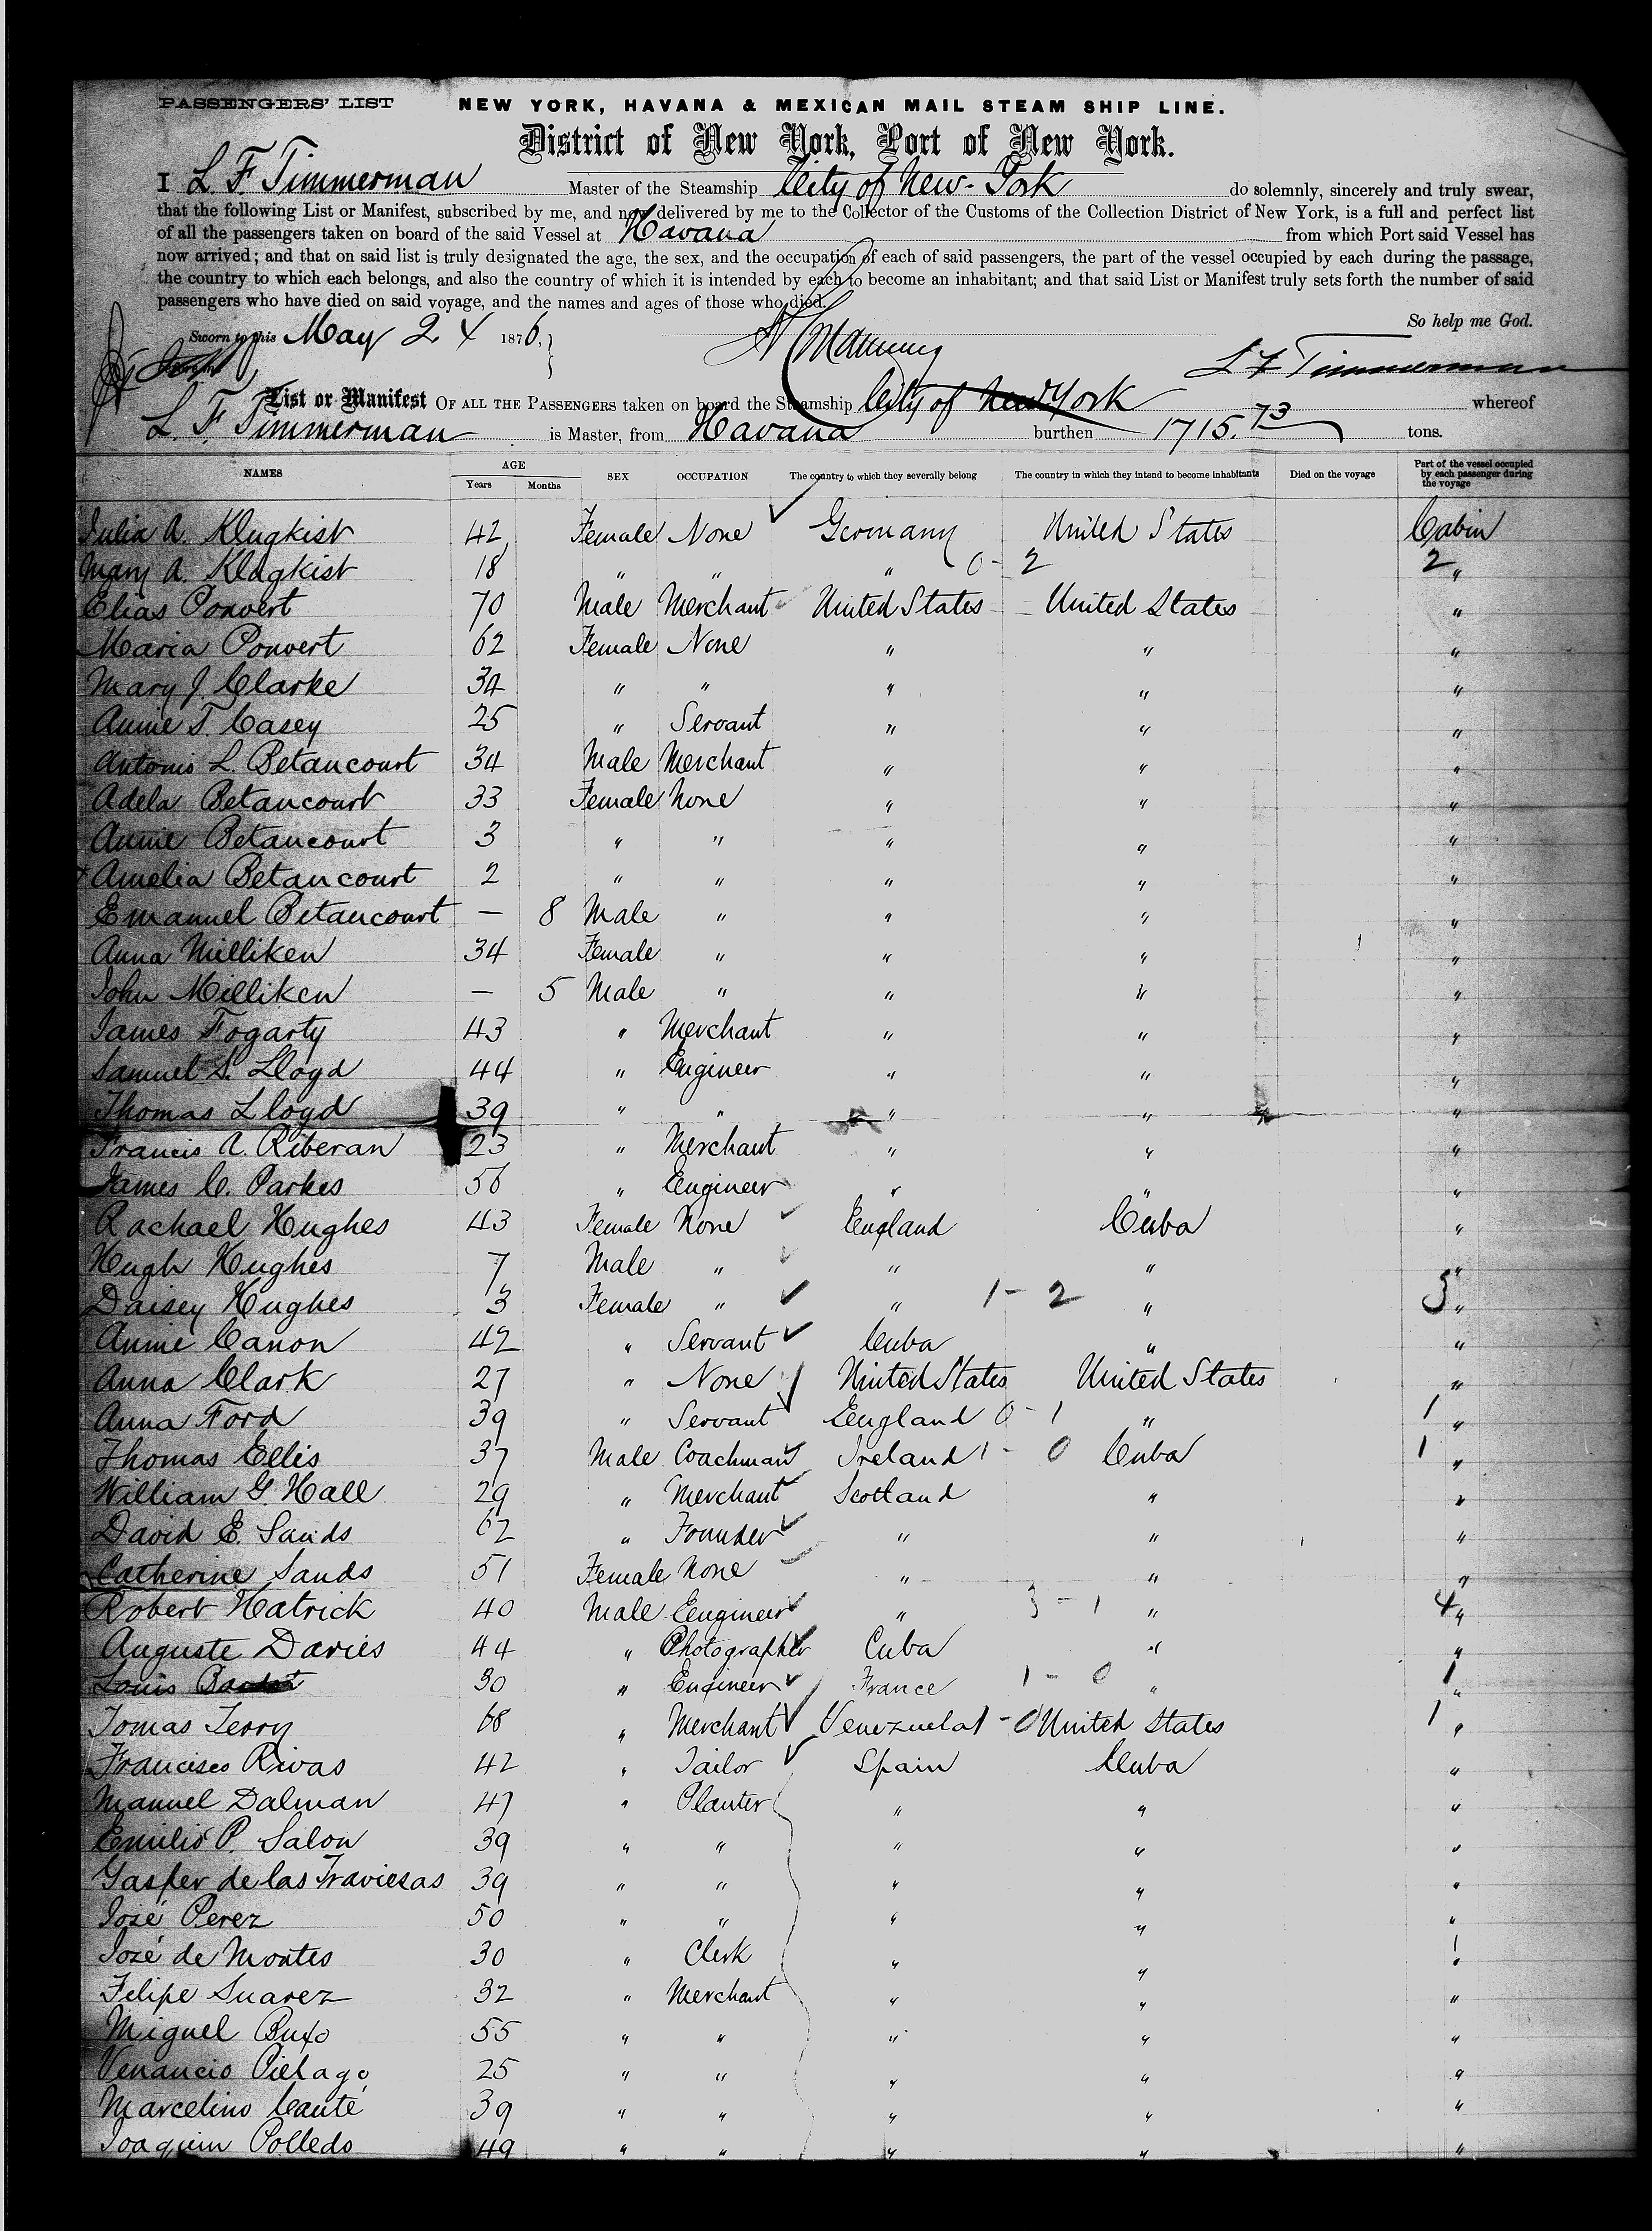 PASSENGERS' LIST NEW YORK, HAVANA & MEXICAN MAIL STEAM SHIP LINE.
District of New York, Port of New York.
I L. F. Timmerman Master of the Steamship City of New-York do solemnly, sincerely and truly swear,
that the following List or Manifest, subscribed by me, and now delivered by me to the Collector of the Customs of the Collection District of New York, is a full and perfect list
of all the passengers taken on board of the said Vessel at Havana from which Port said Vessel has
now arrived; and that on said list is truly designated the age, the sex, and the occupation of each of said passengers, the part of the vessel occupied by each during the passage,
the country to which each belongs, and also the country of which it is intended by each to become an inhabitant; and that said List or Manifest truly sets forth the number of said
passengers who have died on said voyage, and the names and ages of those who died.
So help me God.
Sworn to this May 24 1876,
L F Timmerman
List or Manifest OF ALL THE PASSENGERS taken on board the Steamship City of New York whereof
L. F. Timmerman is Master, from Havana burthen 1715.73 tons.
NAMES AGE Years Months SEX OCCUPATION The country to which they severally belong The country in which they intend to become inhabitants Died on the voyage Part of the vessel occupied by each passenger during the voyage
Julia A. Klugkist 42 Female None Germany United States Cabin
Mary A. Klugkist 18 " " " 0 - 2 2 "
Elias Ponvert 70 Male Merchant United States United States "
Maria Ponvert 62 Female None " " "
Mary J. Clarke 34 " " " " "
Annie T. Casey 25 " Servant " " "
Antonio L. Betancourt 34 Male Merchant " " "
Adela Betancourt 33 Female None " " "
Annie Betancourt 3 " " " " "
Amelia Betancourt 2 " " " " "
Emanuel Betancourt — 8 Male " " " "
Anna Milliken 34 Female " " " "
John Milliken — 5 Male " " " "
James Fogarty 43 " Merchant " " "
Samuel S. Lloyd 44 " Engineer " " "
Thomas Lloyd 39 " " " " "
Francis A. Riberan 23 " Merchant " " "
James C. Parkes 56 " Engineer " " "
Rachael Hughes 43 Female None England Cuba "
Hugh Hughes 7 Male " " " "
Daisey Hughes 3 Female " " 1 - 2 " 3 "
Annie Canon 42 " Servant Cuba " "
Anna Clark 27 " None United States United States "
Anna Ford 39 " Servant England 0 - 1 " 1 "
Thomas Ellis 37 Male Coachman Ireland 1 - 0 Cuba 1 "
William G. Hall 29 " Merchant Scotland " "
David E. Sands 62 " Founder " " "
Catherine Sands 51 Female None " " "
Robert Hatrick 40 Male Engineer " 3 - 1 " 4 "
Auguste Davies 44 " Photographer Cuba " "
Louis 30 " Engineer France 1 - 0 " 1 "
Tomas Terry 68 " Merchant Venezuela 1 - 0 United States 1 "
Francisco Rivas 42 " Tailor Spain Cuba "
Manuel Dalman 47 " Planter " " "
Emilio P. Salon 39 " " " " "
Gasper de las Traviesas 39 " " " " "
José Perez 50 " " " " "
José de Montes 30 " Clerk " " "
Felipe Suarez 32 " Merchant " " "
Miguel Buxo 55 " " " " "
Venancio Pielago 25 " " " " "
Marcelino Canté 39 " " " " "
Joaquim Polledo 49 " " " " "